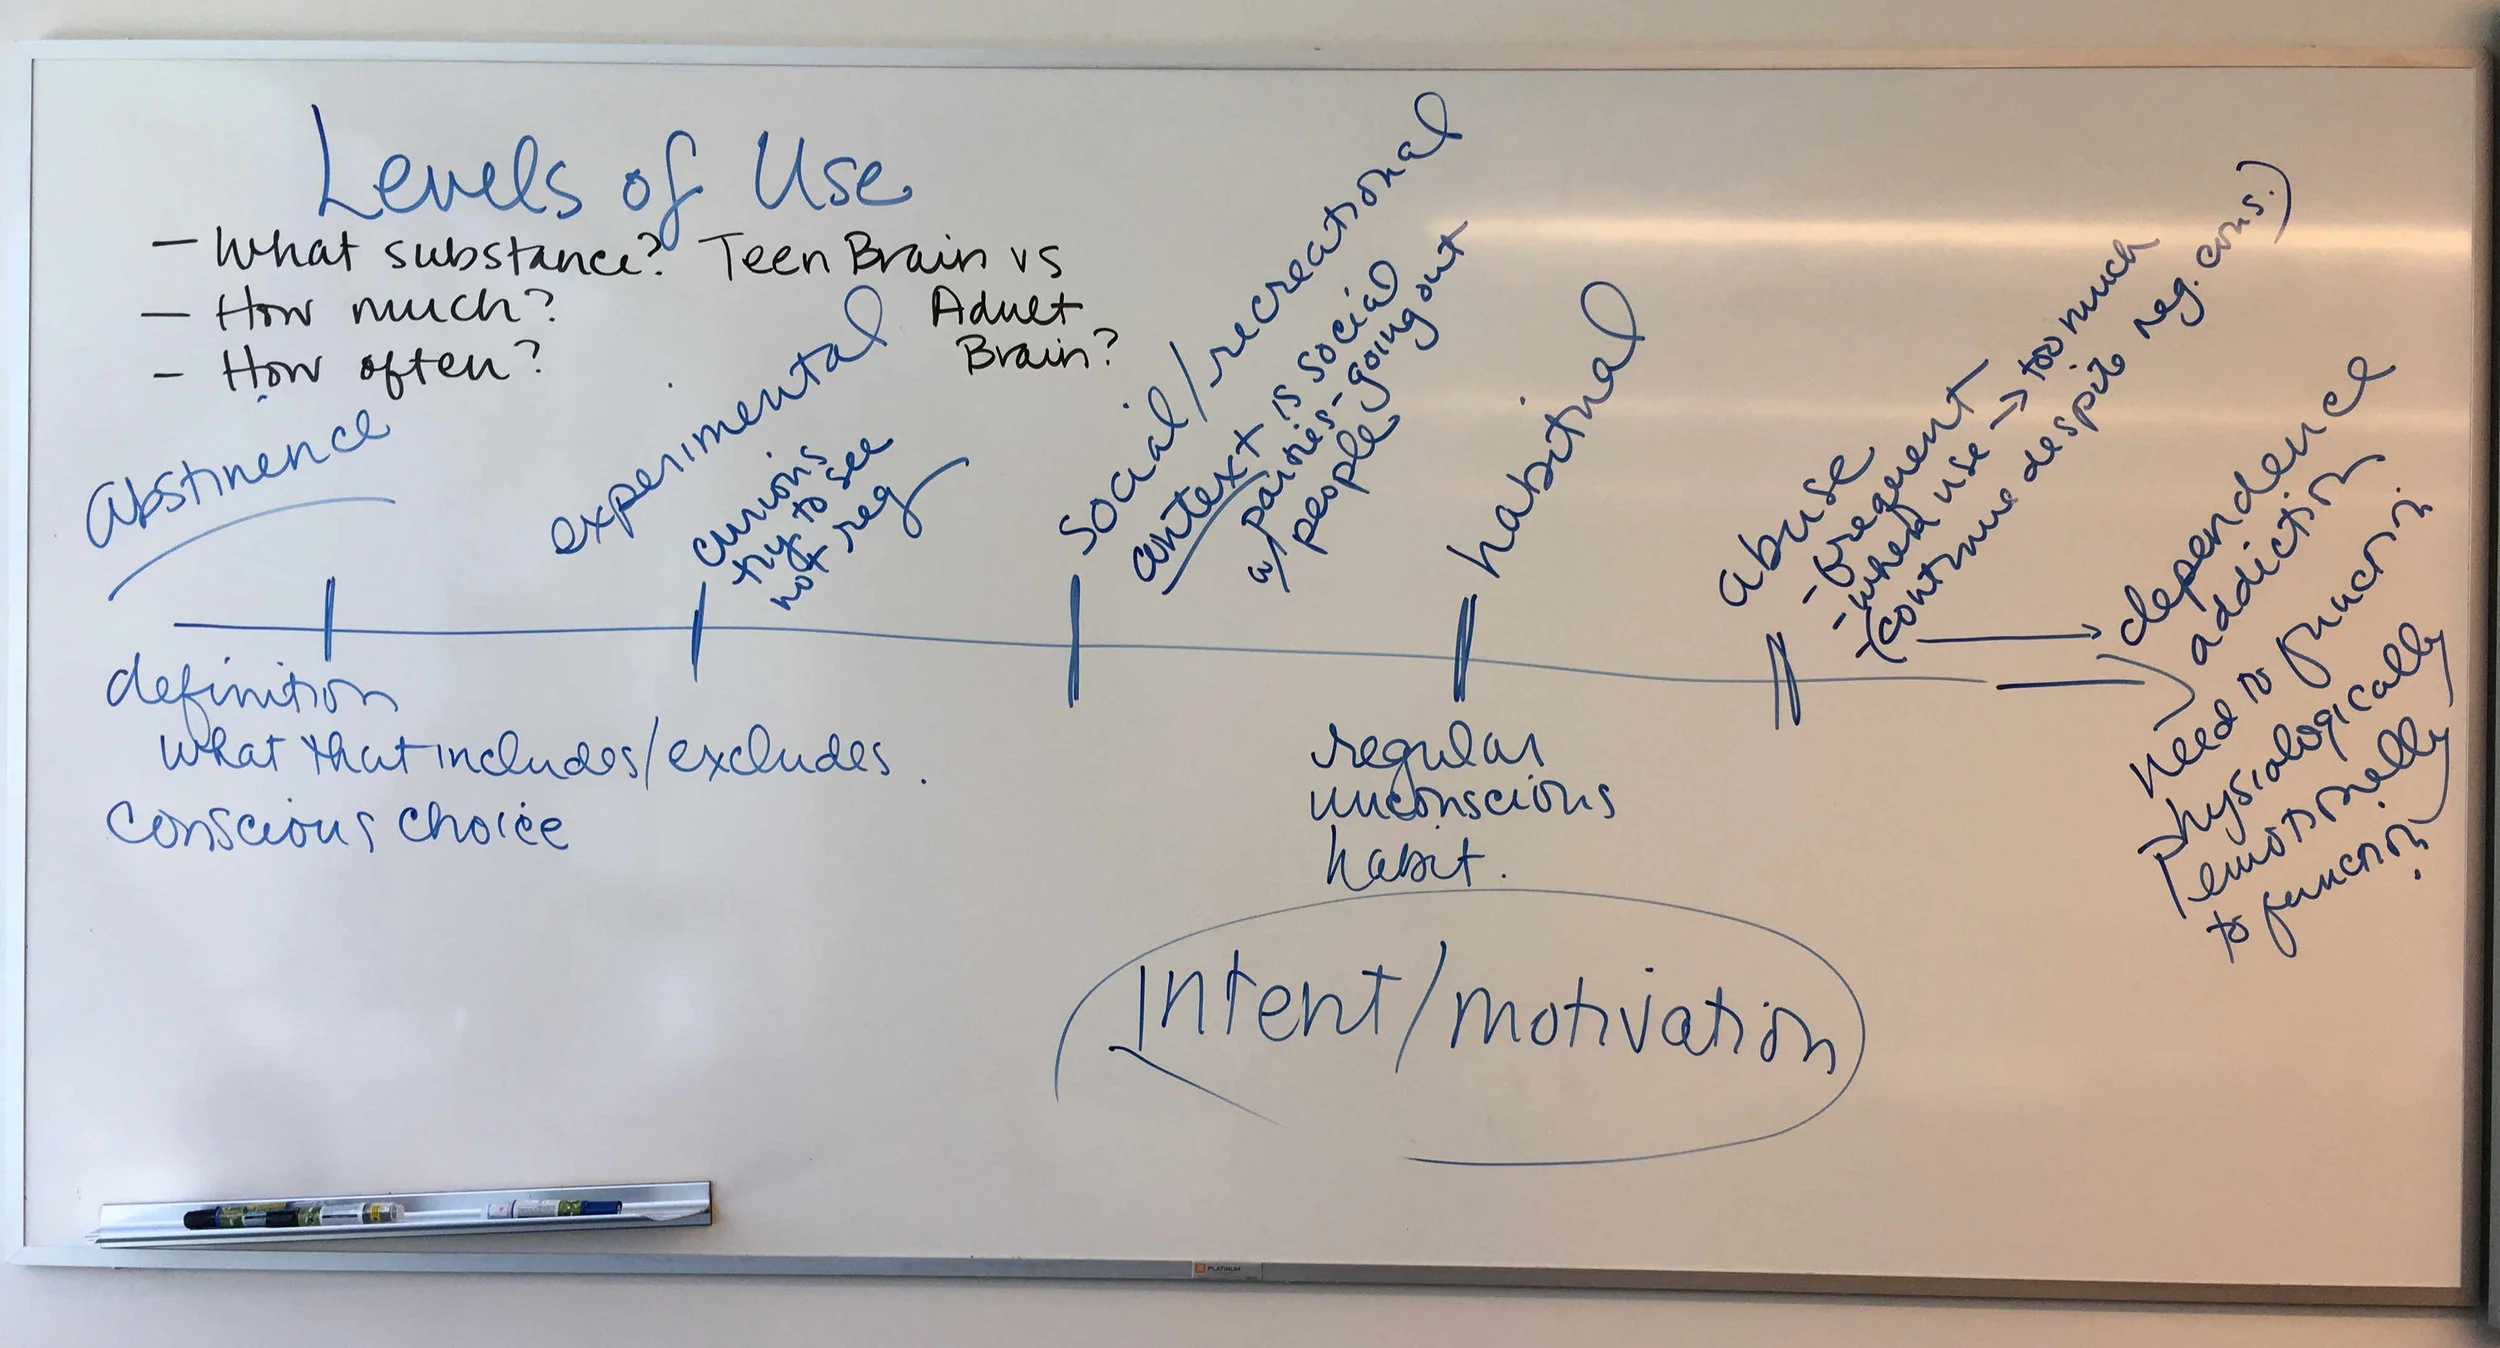 Levels of Use
- What substance? Teen Brain vs
- How much? Adult
- How often? Brain?
Abstinence
experimental
curious
try to see
not reg
social/recreational
context is social
parties-going out
w/ people
habitual
abuse
- frequent
- when use → too much
(continue despite neg. cons.)
dependence
addiction
need to function
physiologically
emotionally
to function
definition
what that includes/excludes.
conscious choice
regular
unconscious
habit.
Intent/motivation
PLATINUM